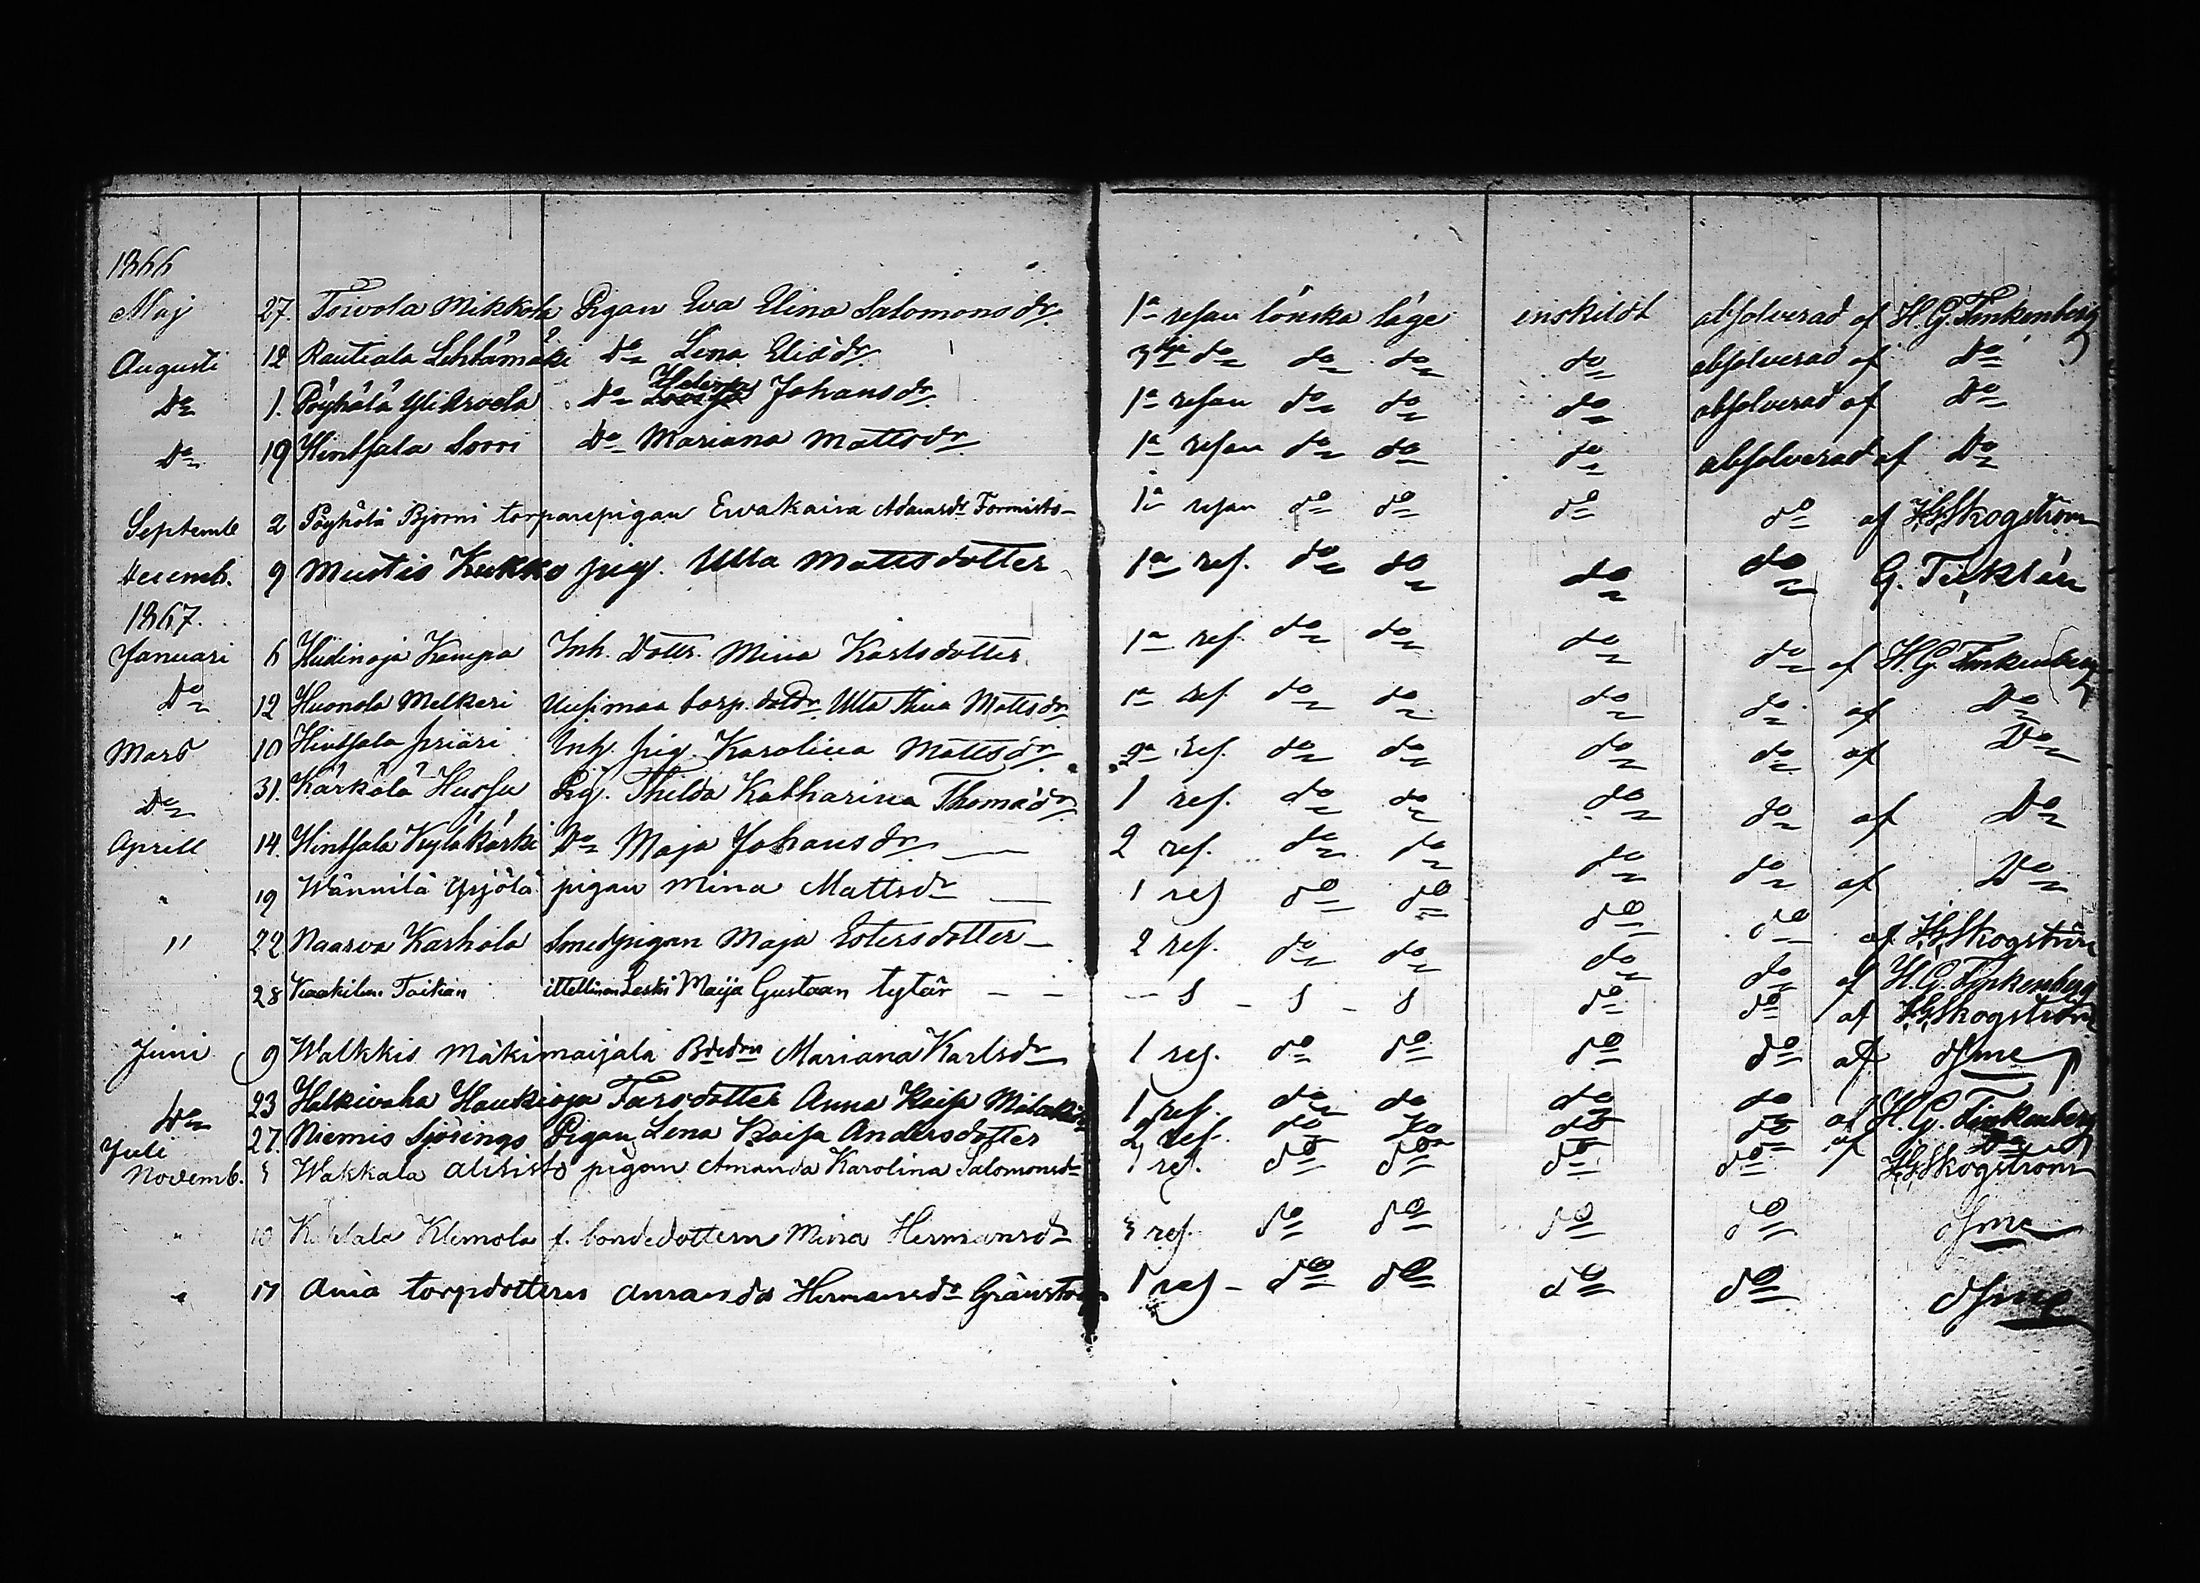 1866
Maj 27. Toivola Mikkola Pigan Eva Elina Salomonsdr. 1a resan lönska läge enskildt absolverad af H. G. Finkenberg
Augusti 12 Rautiala Lehtämäki Do Lena Eliædr. 3dje do do do do absolverad af Do
Do 1. Pöyhölä Yli Arvela Do Helena Johansdr. 1a resan do do do absolverad af Do
Do 19 Hintsala Sorri Do Mariana Mattsdr 1a resan do do do absolverad af Do
Septemb 2 Pöyhölä Bjorni torparepigan Evakaisa Adamsdr Formisto 1a resan do do do do af Skogström
Decemb. 9 Mustis Kukko pig. Ulla Mattsdotter 1a res. do do do do G.
1867.
Januari 6 Hudinoja Kampa Inh. Dottr. Mina Karlsdotter. 1a res. do do do do af H. G. Finkenberg
Do 12 Huonola Melkeri Uusimaa torp. Ulla Mattsdr 1a res. do do do do af Do
Mars 10 Hintsala priäri Inh. pig. Karolina Mattsdr 2a res. do do do do af Do
Do 31. Kärkölä Hussu Pig. Thilda Katharina Thomædr 1 res. do do do do af Do
Aprill 14. Hintsala Kyläkärki Do Maja Johansdr 2 res. do do do do af Do
" 19 Wännilä Yrjölä pigan Mina Mattsdr 1 res do do do do af Skogström
" 22 Naarva Karhola Smedpigan Maja do do do do af H. G. Finkenberg
28 Taikan itellinen Leski Maija Gustaan tytär do do af Skogström
Juni 9 Walkkis Mäkimaijala Mariana Karlsdr 1 res. do do do do af dsme
Do 23 Halkivaha Haukioja Anna Kaisa 1 res. do do do do af H. G. Finkenberg
Juli 27. Niemis Sjörings Pigan Lena Kaisa Andersdotter 2 res. do do do do af Do
Novemb. Wakkala Alisisto pigan Amanda Karolina Salomonsdr 1 res. do do do do Skogström
" 10 Klemola f. bondedottern Mina Hermansdr res. do do do do dsme
" 17 Ania torpdottern Amanda Hermansdr 1 res do do do do dsme